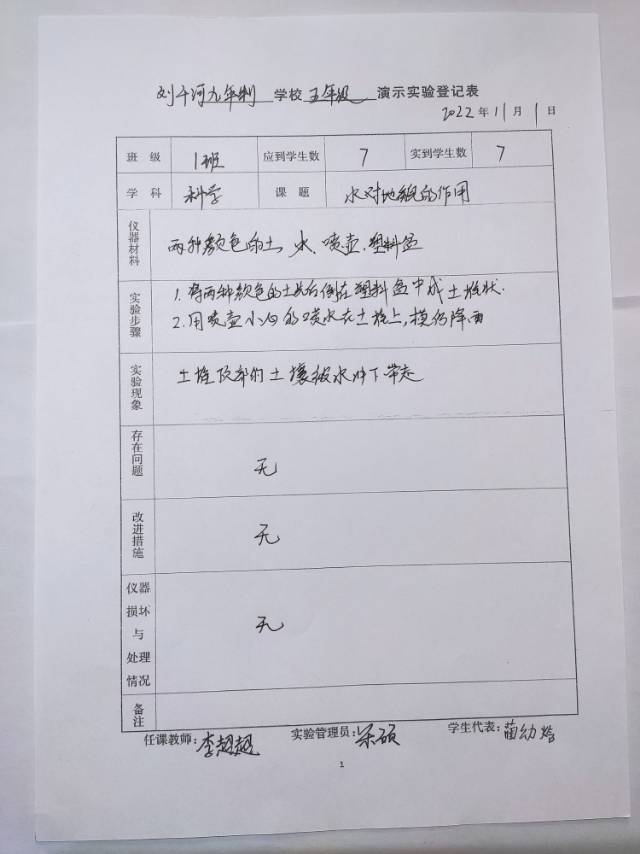 刘千河九年制 学校 五年级 演示实验登记表
2022 年 11 月 1 日
班 级 1班 应到学生数 7 实到学生数 7
学 科 科学 课 题 水对地貌的作用
仪器材料 两种颜色的土、水、喷壶、塑料盆
实验步骤 1. 将两种颜色的土先后倒在塑料盆中成土堆状.
2. 用喷壶小心的喷水在土堆上,模仿降雨
实验现象 土堆顶部的土壤被水冲下带走
存在问题 无
改进措施 无
仪器损坏与处理情况 无
备注
任课教师: 李超超 实验管理员: 硕 学生代表: 苗幼
1